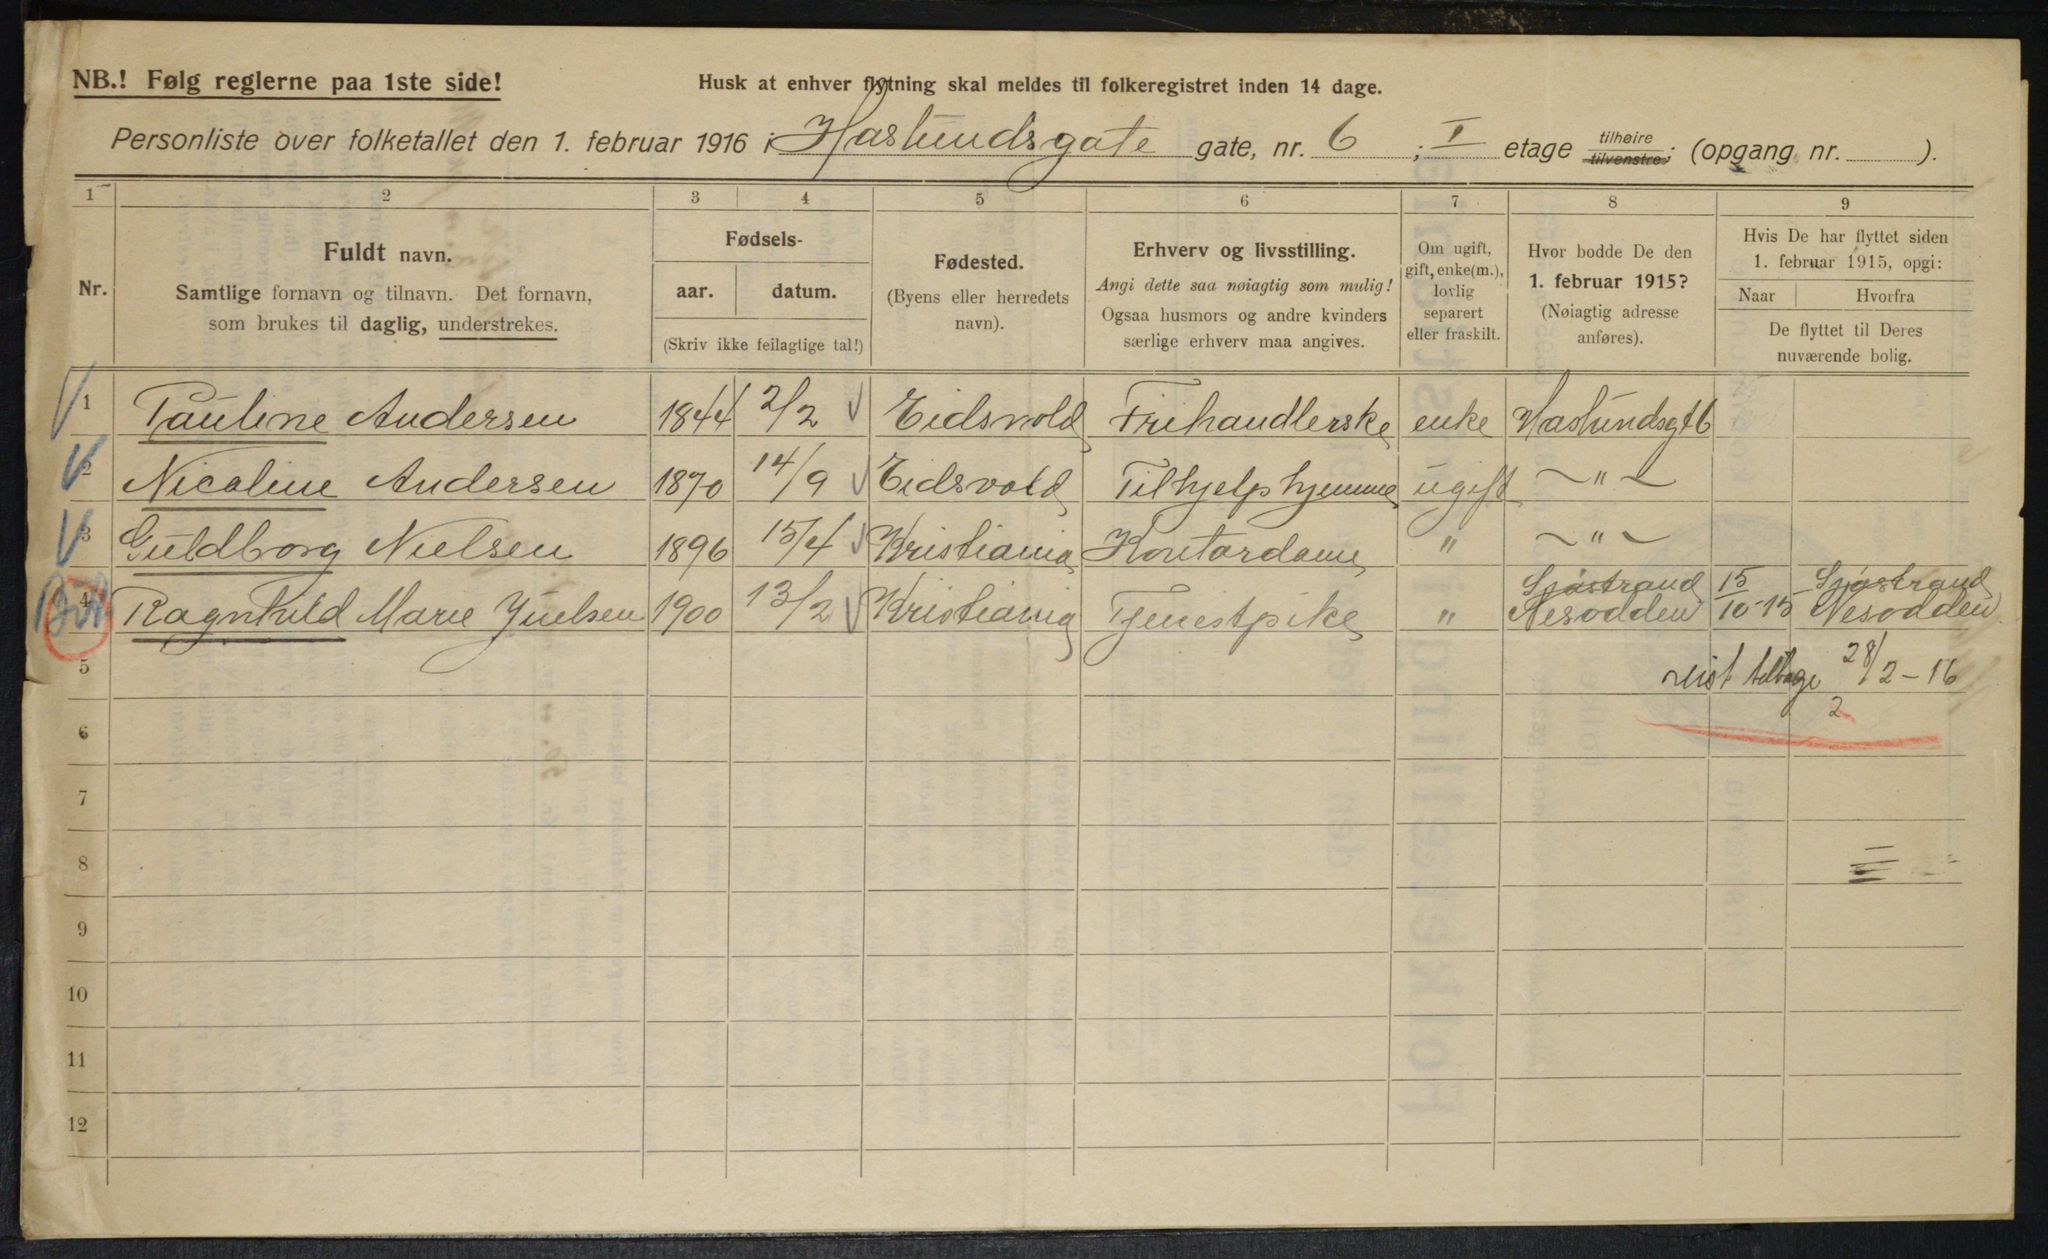 NB.! Følg reglerne paa 1ste side!
Husk at enhver flytning skal meldes til folkeregistret inden 14 dage.
Personliste over folketallet den 1. februar 1916 i Haslundsgate gate, nr. 6 ; I etage tilhøire tilvenstre; (opgang nr. ).
1 2 3 4 5 6 7 8 9
Nr.
Fuldt navn.
Samtlige fornavn og tilnavn. Det fornavn,
som brukes til daglig, understrekes.
Fødsels-
aar. datum.
(Skriv ikke feilagtige tal!)
Fødested.
(Byens eller herredets
navn).
Erhverv og livsstilling.
Angi dette saa nøiagtig som mulig!
Ogsaa husmors og andre kvinders
særlige erhverv maa angives.
Om ugift,
gift, enke(m.),
lovlig
separert
eller fraskilt.
Hvor bodde De den
1. februar 1915?
(Nøiagtig adresse
anføres).
Hvis De har flyttet siden
1. februar 1915, opgi:
Naar Hvorfra
De flyttet til Deres
nuværende bolig.
1 Pauline Andersen 1844 2/2 Eidsvold Frihandlerske enke Haslundsgt 6
2 Nicoline Andersen 1870 14/9 Eidsvold Tilhjelp hjemme ugift ~ " ~
3 Guldborg Nielsen 1896 15/4 Kristiania Kontordame " ~ " ~
4 Ragnhild Marie Juelsen 1900 13/2 Kristiania Tjenestpike " Sjøstrand Nesodden 15/10-15 Sjøstrand Nesodden
5 reist tilbage 28/2-16
2
6
7
8
9
10
11
12